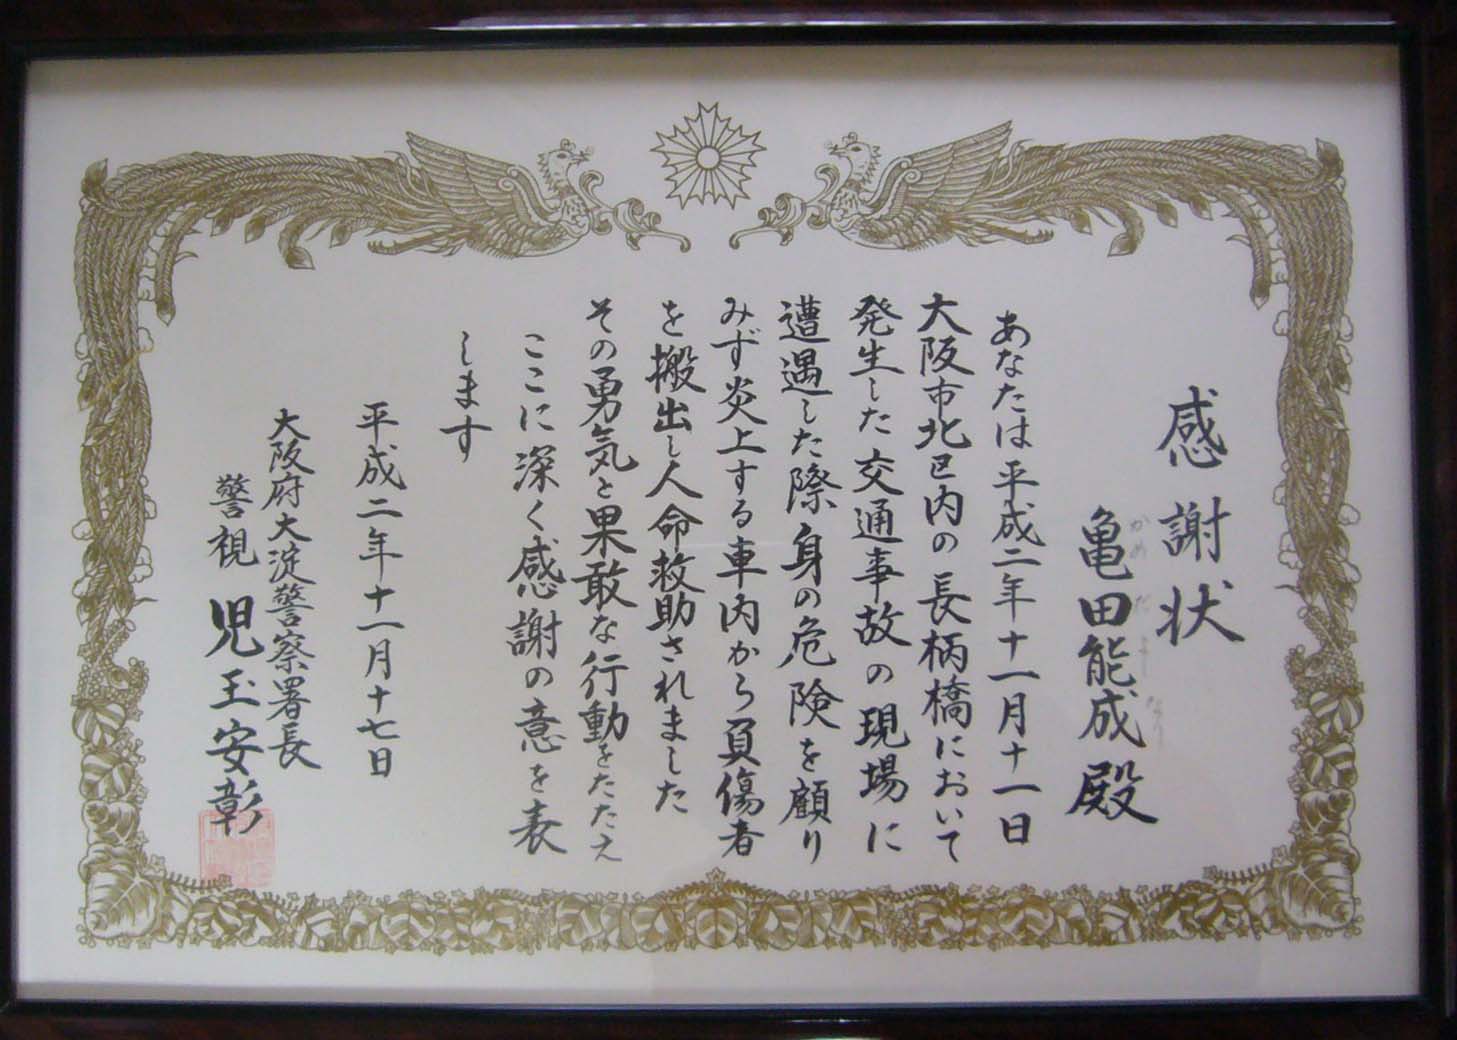 感謝状
亀田能成殿
かめだよしなり
あなたは平成二年十一月十一日
大阪市北区内の長柄橋において
発生した交通事故の現場に
遭遇した際身の危険を顧り
みず炎上する車内から負傷者
を搬出し人命救助されました
その勇気と果敢な行動をたたえ
ここに深く感謝の意を表
します
平成二年十一月十七日
大阪府大淀警察署長
警視 児玉安彰